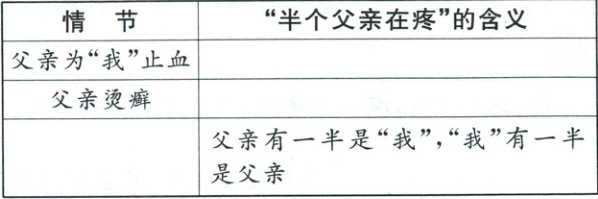 情 节 “半个父亲在疼”的含义
父亲为“我”止血
父亲烫癣
父亲有一半是“我”,“我”有一半
是父亲